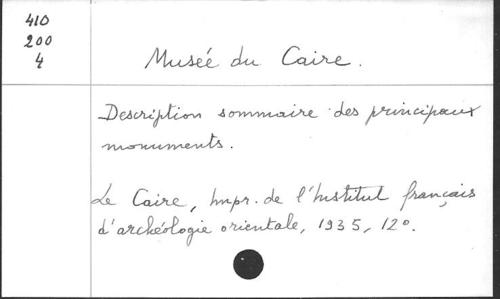 410
200
4
Musée du Caire.
Description sommaire des principaux
monuments.
Le Caire, Impr. de l'Institut français
d'archéologie orientale, 1935, 12°.